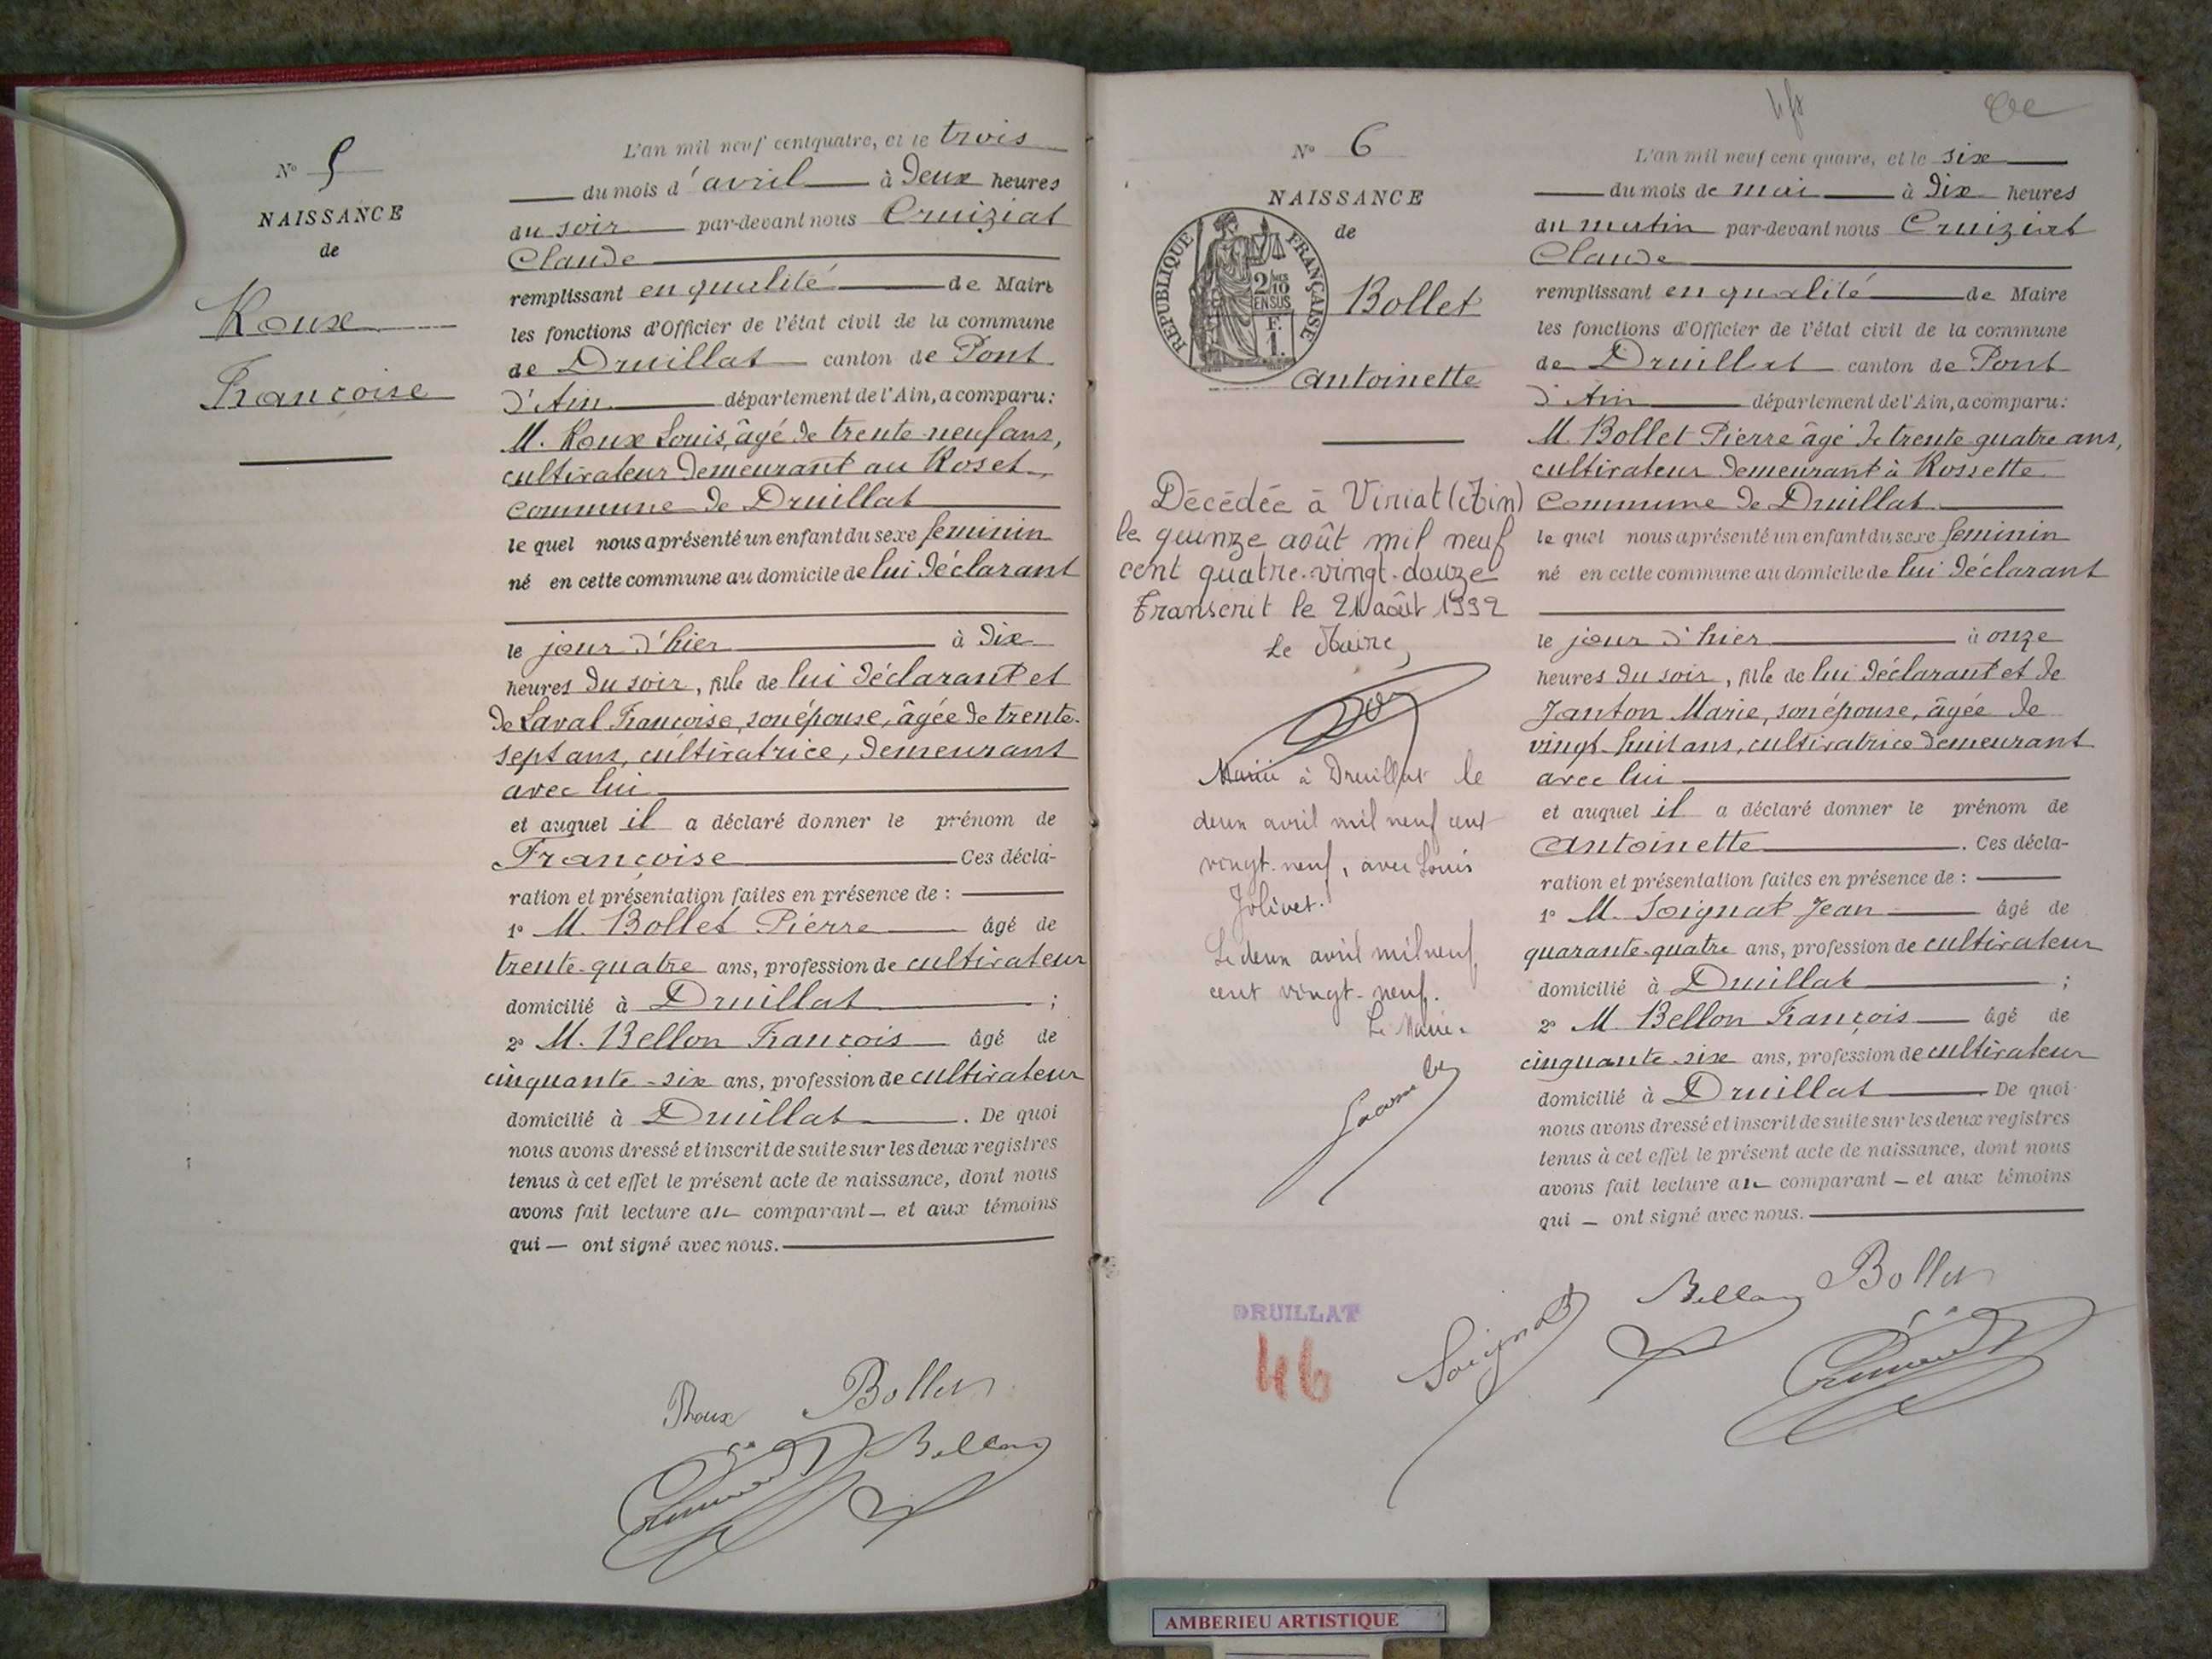 N° 5
NAISSANCE
de
Roux
Françoise
L'an mil neuf cent quatre, et le trois
du mois d'avril à deux heures
du soir par-devant nous Cruiziat
Claude
remplissant en qualité de Maire
les fonctions d'Officier de l'état civil de la commune
de Druillat canton de Pont
d'Ain département de l'Ain, a comparu:
M. Roux Louis, âgé de trente-neuf ans,
cultivateur demeurant au Roset
commune de Druillat
le quel nous a présenté un enfant du sexe feminin
né en cette commune au domicile de lui déclarant
le jour d'hier à dix
heures du soir, fille de lui déclarant et
de Laval Françoise, son épouse, âgée de trente-
sept ans, cultivatrice, demeurant
avec lui
et auquel il a déclaré donner le prénom de
Françoise Ces décla-
ration et présentation faites en présence de :
1° M. Bollet Pierre âgé de
trente-quatre ans, profession de cultivateur
domicilié à Druillat ;
2° M. Bellon François âgé de
cinquante-six ans, profession de cultivateur
domicilié à Druillat . De quoi
nous avons dressé et inscrit de suite sur les deux registres
tenus à cet effet le présent acte de naissance, dont nous
avons fait lecture au comparant — et aux témoins
qui — ont signé avec nous.
Roux Bollet
Cruiziat Bellon
N° 6
NAISSANCE
de
RÉPUBLIQUE FRANÇAISE
2/10
EN SUS
F.
1.
Bollet
Antoinette
Décédée à Viriat (Ain)
le quinze août mil neuf
cent quatre-vingt-douze
Transcrit le 21 août 1992
Le Maire,
Mariée à Druillat le
deux avril mil neuf cent
vingt-neuf, avec Louis
Jolivet.
Le deux avril mil neuf
cent vingt-neuf.
Le Maire.
DRUILLAT
46
L'an mil neuf cent quatre, et le six
du mois de mai à dix heures
du matin par-devant nous Cruiziat
Claude
remplissant en qualité de Maire
les fonctions d'Officier de l'état civil de la commune
de Druillat canton de Pont
d'Ain département de l'Ain, a comparu:
M. Bollet Pierre âgé de trente quatre ans,
cultivateur demeurant à Rossette
Commune de Druillat
le quel nous a présenté un enfant du sexe feminin
né en cette commune au domicile de lui déclarant
le jour d'hier à onze
heures du soir, fille de lui déclarant et de
Janton Marie, son épouse, âgée de
vingt-huit ans, cultivatrice demeurant
avec lui
et auquel il a déclaré donner le prénom de
Antoinette . Ces décla-
ration et présentation faites en présence de :
1° M. Soignat Jean âgé de
quarante-quatre ans, profession de cultivateur
domicilié à Druillat ;
2° M. Bellon François âgé de
cinquante-six ans, profession de cultivateur
domicilié à Druillat De quoi
nous avons dressé et inscrit de suite sur les deux registres
tenus à cet effet le présent acte de naissance, dont nous
avons fait lecture au comparant — et aux témoins
qui — ont signé avec nous.
Soignat Bellon Bollet
Cruiziat
AMBERIEU ARTISTIQUE